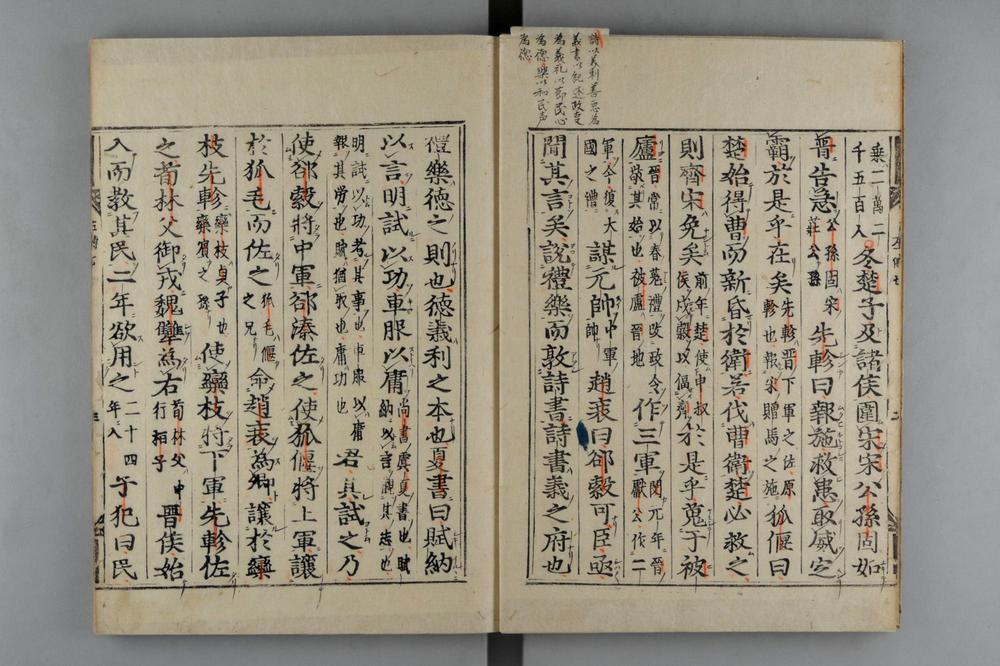 詩以美刺善惡為
義書以紀述政事
為義礼以節民心
為德樂以和民声
為德
乘二萬二千五百人冬楚子及諸侯圍宋宋公孫固如
晉告急公孫固宋莊公孫先軫曰報施救患取威定
霸於是乎在矣先軫晉下軍之佐原軫也報宋贈馬之施狐偃曰
楚始得曹而新昏於衛若伐曹衛楚必救之
則齊宋免矣前年楚使申叔侯戍穀以偪齊於是乎蒐于被
廬晉常以春蒐禮改政令敬其始也被廬晉地作三軍閔元年晉獻公作二
軍今復大國之禮謀元帥中軍帥趙衰曰郤縠可臣亟
聞其言矣說禮樂而敦詩書詩書義之府也
禮樂德之則也德義利之本也夏書曰賦納
以言明試以功車服以庸尚書虞夏書也賦納以言觀其志也
明試以功考其事也車服以庸報其勞也賦猶取也庸功也君其試之乃
使郤縠將中軍郤溱佐之使狐偃將上軍讓
於狐毛而佐之狐毛偃之兄命趙衰為卿讓於欒
枝先軫欒枝貞子也欒賓之孫使欒枝將下軍先軫佐
之荀林父御戎魏犨為右荀林父中行桓子晉侯始
入而教其民二年欲用之二十四年入子犯曰民